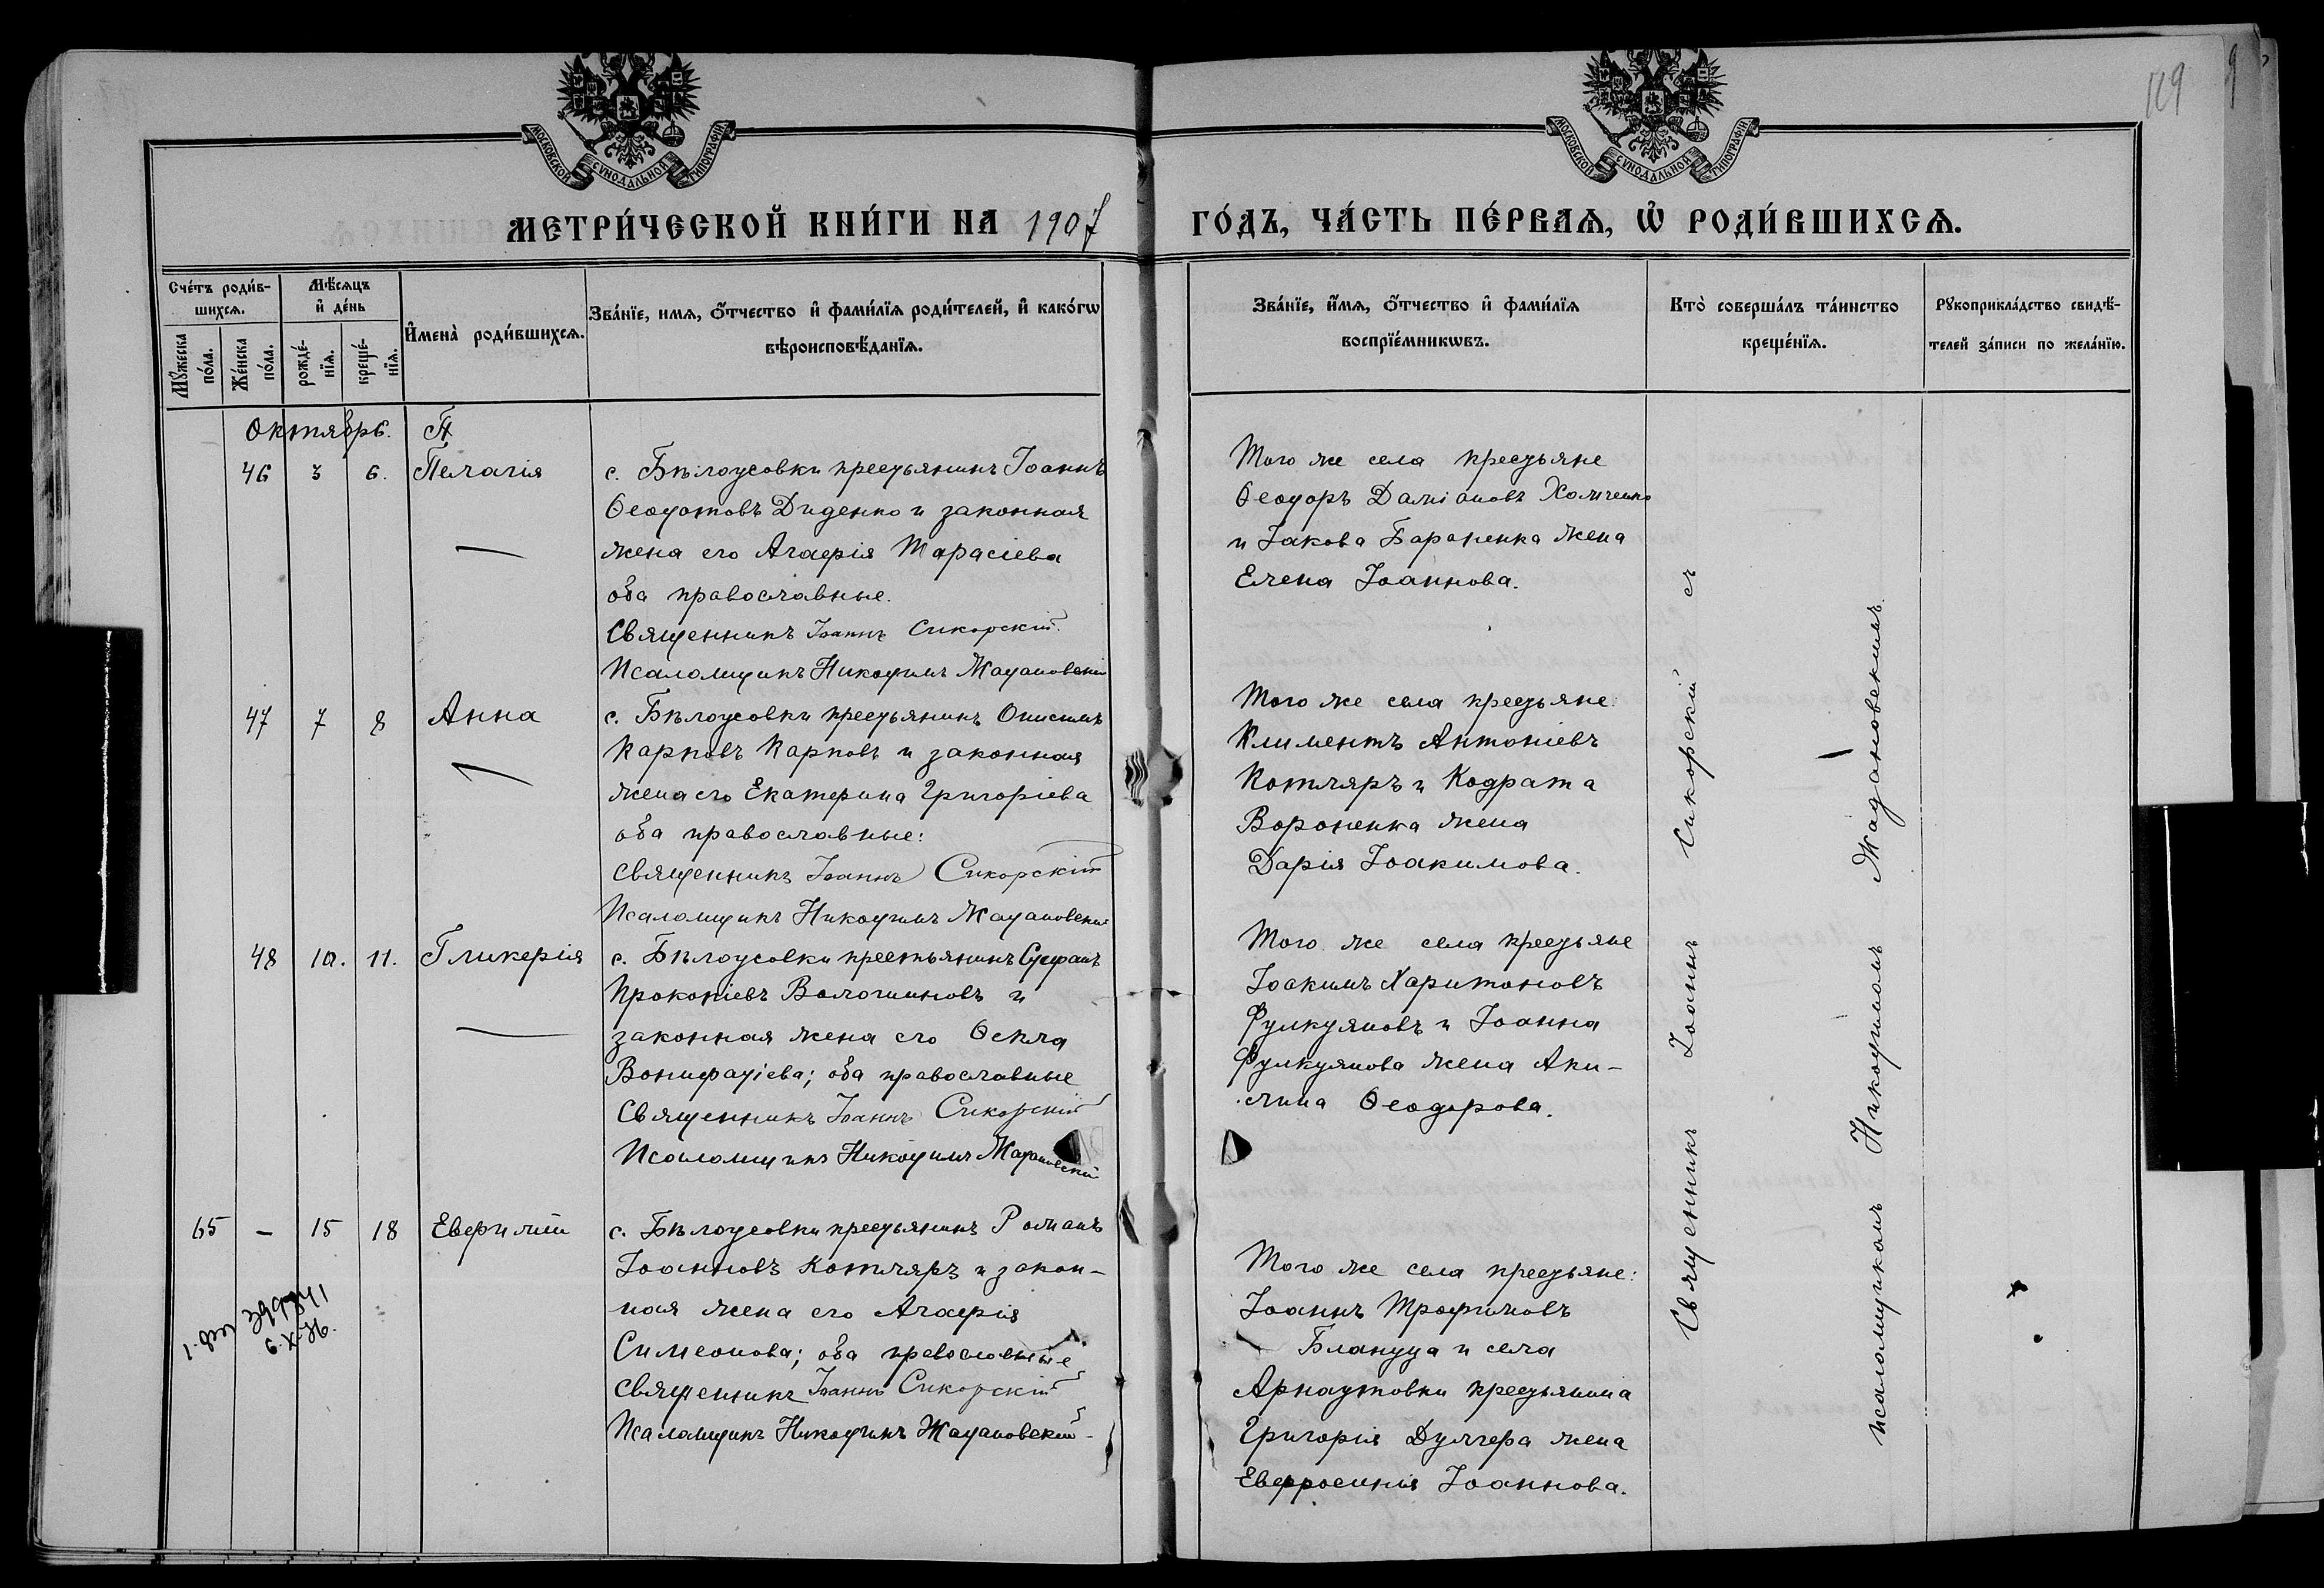 119
МОСКОВСКОЙ СУНОДАЛЬНОЙ ТИПОГРАФІИ
МОСКОВСКОЙ СУНОДАЛЬНОЙ ТИПОГРАФІИ
МЕТРИ́ЧЕСКОЙ КНИ́ГИ НА 1907 ГО́ДЪ, ЧА́СТЬ ПЕ́РВАѦ, Ѡ҆ РОДИ́ВШИХСѦ.
Сче́тъ роди́в-
шихсѧ.
Мѣ́сѧцъ
и҆ де́нь
Мꙋ́жеска
по́ла.
Же́нска
по́ла.
рожде́-
нїѧ.
креще́-
нїѧ.
И҆мена̀ роди́вшихсѧ.
Зва́нїе, имѧ, ѻ҆́тчество и҆ фами́лїѧ роди́телей, и҆ како́гѡ
вѣроисповѣ́данїѧ.
Зва́нїе, и҆́мѧ, ѻ҆́тчество и҆ фами́лїѧ
воспрїе́мникѡвъ.
Кто̀ соверша́лъ та́инство
креще́нїѧ.
Рꙋкоприкла́дство свидѣ́-
телей за́писи по жела́нїю.
Октябрь.
46 3 6. Пелагія
с. Бѣлоусовки крестьянинъ Іоаннъ
Ѳеодотовъ Диденко и законная
жена его Агаѳія Тарасіева
оба православные.
Священникъ Іоаннъ Сикорскій.
Псаломщикъ Никодимъ Жадановскій
Того же села крестьяне
Ѳеодоръ Даміановъ Хомченко
и Іакова Бараненка жена
Елена Іоаннова.
47 7 8 Анна
с. Бѣлоусовки крестьянинъ Онисимъ
Карповъ Карповъ и законная
жена его Екатерина Григоріева
оба православные:
Священникъ Іоаннъ Сикорскій
Псаломщикъ Никодимъ Жадановскій
Того же села крестьяне:
Климентъ Антоніевъ
Котляръ и Кодрата
Вороненка жена
Дарія Іоакимова.
48 10. 11. Гликерія
с. Бѣлоусовки крестьянинъ Стефанъ
Прокопіевъ Волошиновъ и
законная жена его Ѳекла
Вонифатіева; оба православные
Священникъ Іоаннъ Сикорскій
Псаломщикъ Никодимъ Жадановскій
Того же села крестьяне
Іоакимъ Харитоновъ
Фулкуяновъ и Іоанна
Фулкуянова жена Аки-
лина Ѳеодорова.
65 – 15 18 Евѳимій
с. Бѣлоусовки крестьянинъ Романъ
Іоанновъ Котляръ и закон-
ная жена его Агаѳія
Симеонова; оба православные
Священникъ Іоаннъ Сикорскій
Псаломщикъ Никодимъ Жадановскій
6.X-76.
Того же села крестьяне:
Іоаннъ Трофимовъ
Бландуца и села
Арнаутовки крестьянина
Григорія Дулгера жена
Евфросинія Іоаннова.
Священникъ Іоаннъ Сикорскій съ
псаломщикомъ Никодимомъ Жадановскимъ.